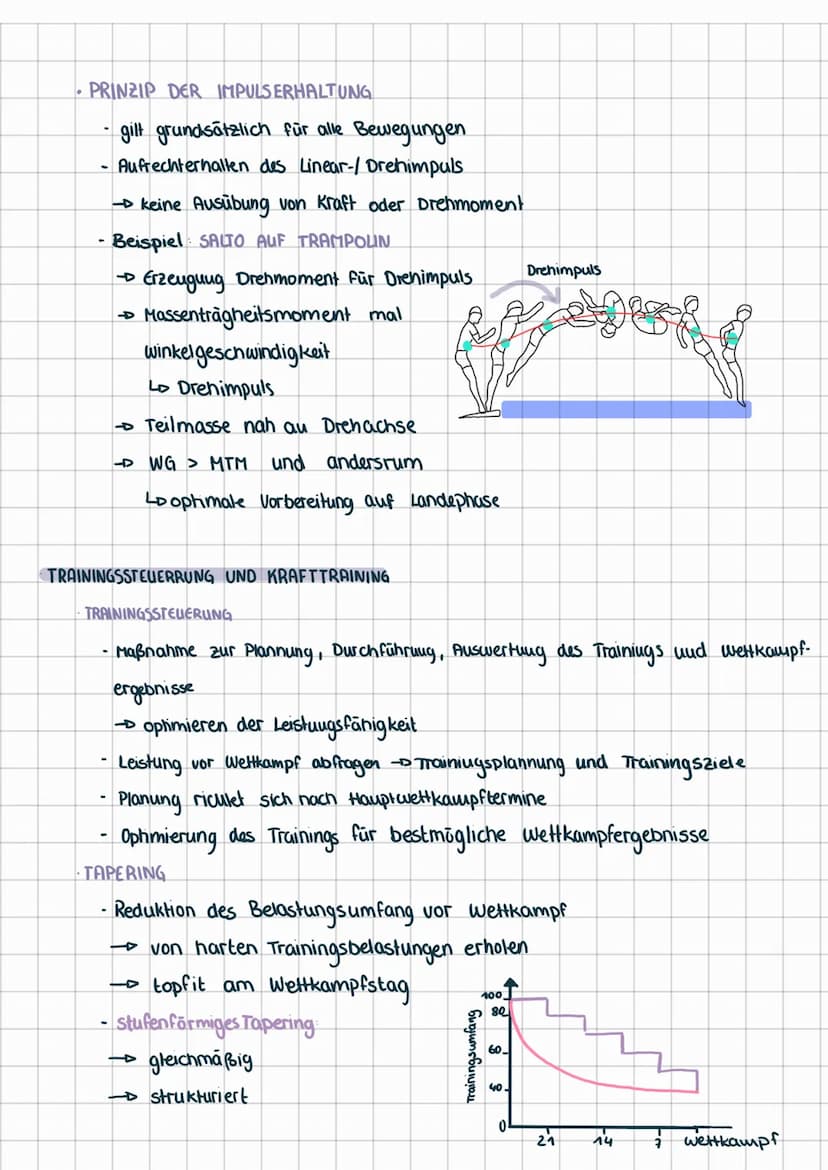 · PRINZIP DER IMPULSERHALTUNG
- gilt grundsätzlich für alle Bewegungen
- Aufrechterhalten des Linear-/ Drehimpuls
→ keine Ausübung von Kraft oder Drehmoment
- Beispiel: SALTO AUF TRAMPOLIN
Drehimpuls
→ Erzeugung Drehmoment für Drehimpuls
→ Massenträgheitsmoment mal
Winkelgeschwindigkeit
↳ Drehimpuls
→ Teilmasse nah an Drehachse
→ WG > MTM und andersrum
↳ optimale Vorbereitung auf Landephase
TRAININGSSTEUERRUNG UND KRAFTTRAINING
· TRAININGSSTEUERUNG
- Maßnahme zur Plannung, Durchführung, Auswertung des Trainings und Wettkampf-
ergebnisse
→ optimieren der Leistungsfähigkeit
- Leistung vor Wettkampf abfragen → Trainingsplannung und Trainingsziele
- Planung richtet sich nach Hauptwettkampftermine
- Optimierung des Trainings für bestmögliche Wettkampfergebnisse
· TAPERING
- Reduktion des Belastungsumfang vor Wettkampf
→ von harten Trainingsbelastungen erholen
→ topfit am Wettkampfstag
- stufenförmiges Tapering
→ gleichmäßig
→ strukturiert
Trainingsumfang
100
80
60
40
0
21 14 7 Wettkampf